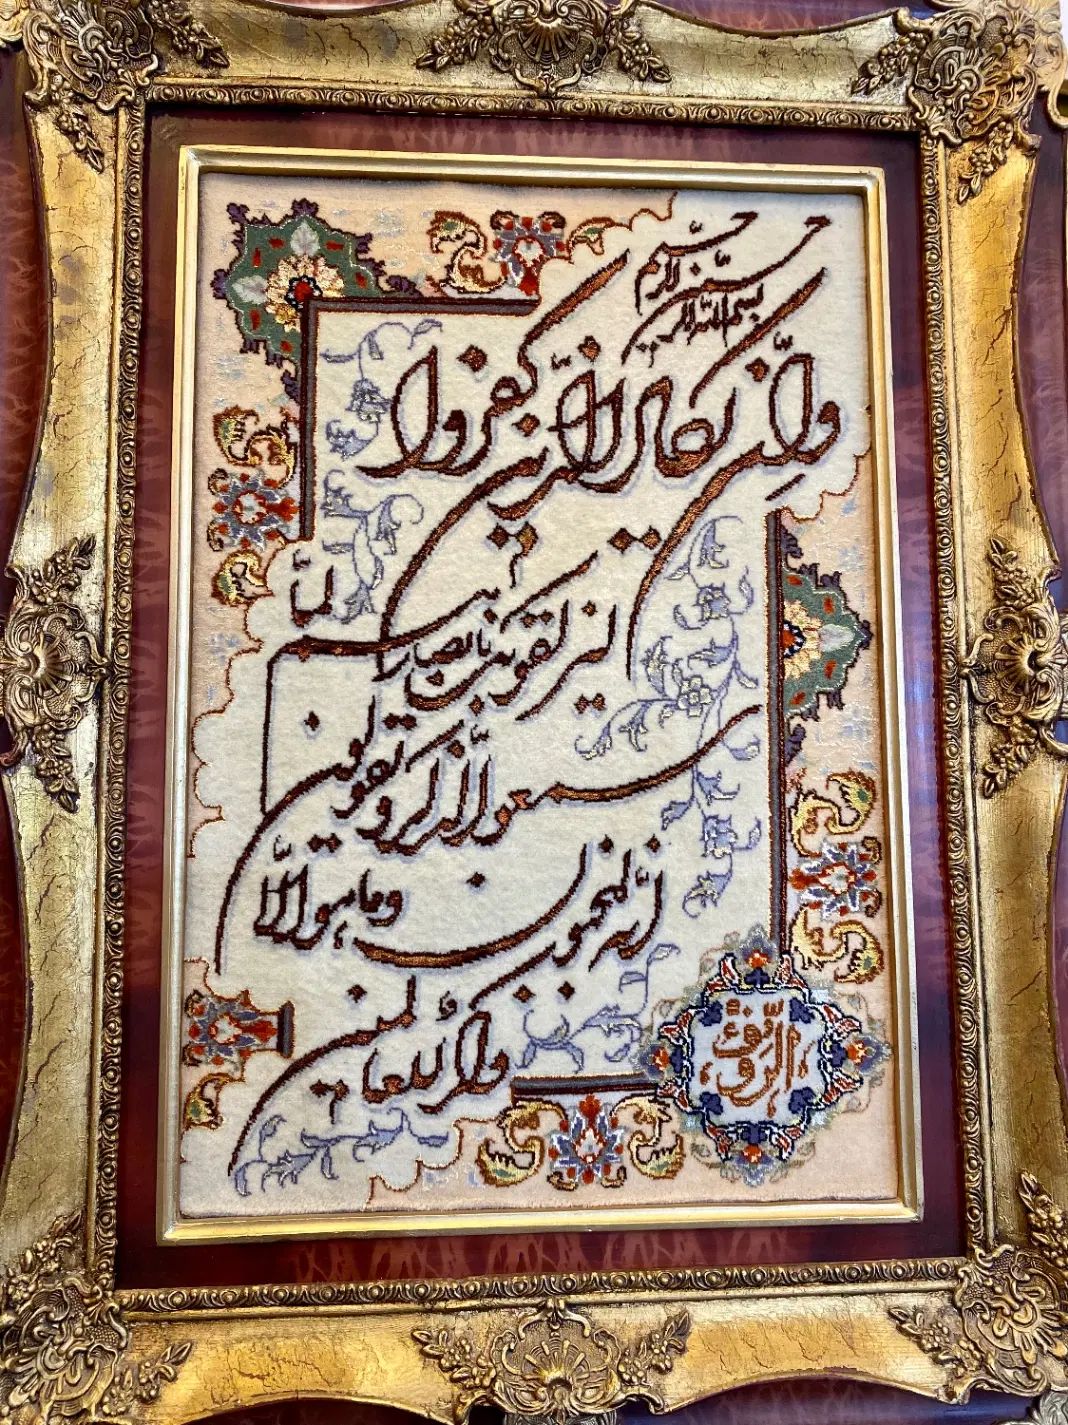 بسم الله الرحمن الرحیم
وإن یکاد الذین کفروا
لیزلقونک بأبصارهم لما
سمعوا الذکر ویقولون
إنه لمجنون وما هو إلا
ذکر للعالمین